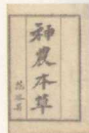 神農本草